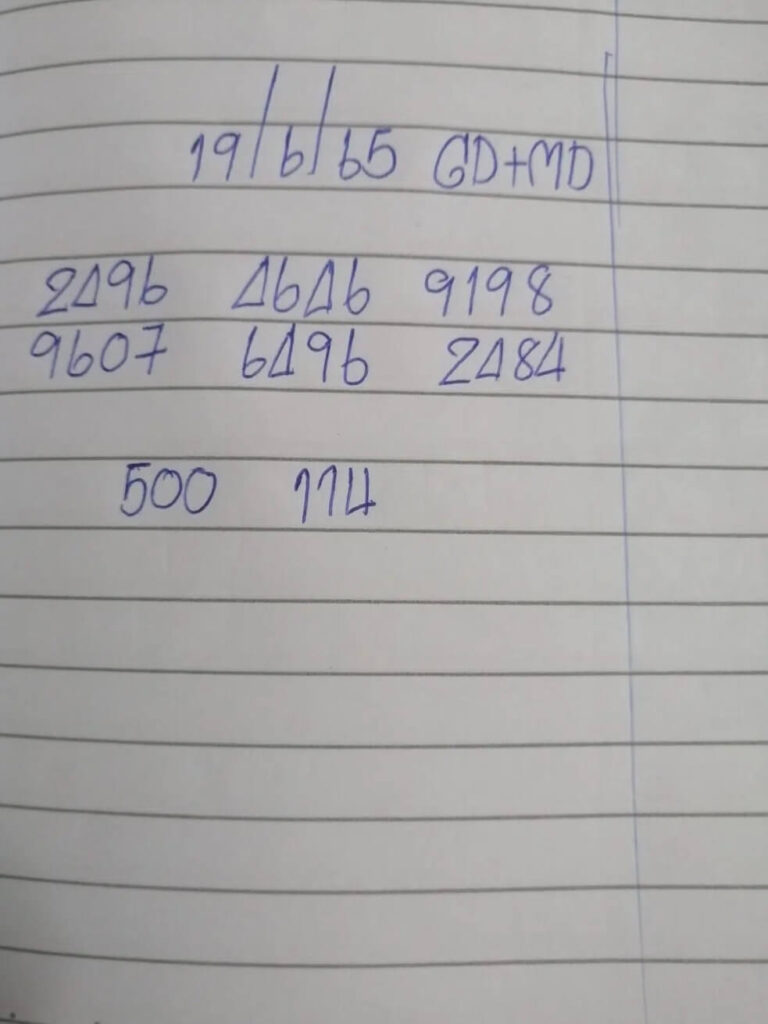 19/6/65 GD+MD
2496 4646 9198
9607 6496 2484
500 114